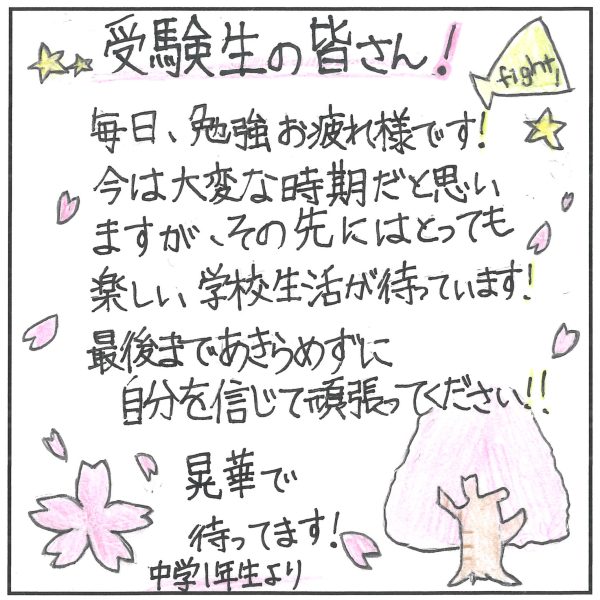 受験生の皆さん!
fight!
毎日、勉強お疲れ様です!
今は大変な時期だと思い
ますが、その先にはとっても
楽しい学校生活が待っています!
最後まであきらめずに
自分を信じて頑張ってください!!
晃華で
待ってます!
中学1年生より